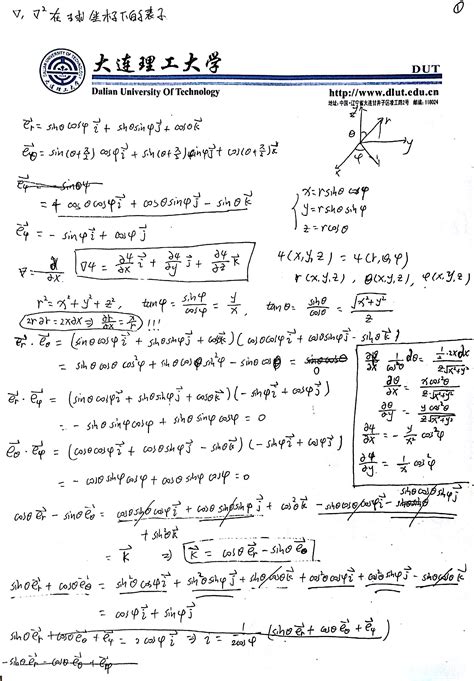 ∇, ∇² 在球坐标下的表示
①
大连理工大学
Dalian University Of Technology
DUT
http://www.dlut.edu.cn
地址:中国·辽宁省大连甘井子区凌工路2号 邮编:116024
e⃗r = sinθ cosφ i⃗ + sinθ sinφ j⃗ + cosθ k⃗
e⃗θ = sin(θ+π/2) cosφ i⃗ + sin(θ+π/2) sinφ j⃗ + cos(θ+π/2) k⃗
= cosθ cosφ i⃗ + cosθ sinφ j⃗ − sinθ k⃗
e⃗φ = − sinφ i⃗ + cosφ j⃗
z
θ
r
y
φ
x
x = r sinθ cosφ
y = r sinθ sinφ
z = r cosθ
∇ψ = ∂ψ/∂x i⃗ + ∂ψ/∂y j⃗ + ∂ψ/∂z k⃗
ψ(x,y,z) = ψ(r,θ,φ)
r(x,y,z), θ(x,y,z), φ(x,y,z)
r² = x² + y² + z², tanφ = sinφ/cosφ = y/x, tanθ = sinθ/cosθ = √(x²+y²)/z
2r∂r = 2x∂x ⇒ ∂r/∂x = x/r !!!
e⃗r · e⃗θ = (sinθ cosφ i⃗ + sinθ sinφ j⃗ + cosθ k⃗)(cosθ cosφ i⃗ + cosθ sinφ j⃗ − sinθ k⃗)
= sinθ cosθ cos²φ + sinθ cosθ sin²φ − sinθ cosθ = 0
e⃗r · e⃗φ = (sinθ cosφ i⃗ + sinθ sinφ j⃗ + cosθ k⃗)(−sinφ i⃗ + cosφ j⃗)
= − sinθ sinφ cosφ + sinθ sinφ cosφ = 0
e⃗θ · e⃗φ = (cosθ cosφ i⃗ + cosθ sinφ j⃗ − sinθ k⃗)(−sinφ i⃗ + cosφ j⃗)
= − cosθ sinφ cosφ + cosθ sinφ cosφ = 0
∂θ/∂x 1/cos²θ dθ = 1·2x dx / 2z√(x²+y²)
∂θ/∂x = x cos²θ / z√(x²+y²)
∂θ/∂y = y cos²θ / z√(x²+y²)
∂φ/∂x = − y/x² cos²φ
∂φ/∂y = 1/x cos²φ
cosθ e⃗r − sinθ e⃗θ = cosθ sinθ cosφ i⃗ + cosθ sinθ sinφ j⃗ + cos²θ k⃗ − sinθ cosθ cosφ i⃗ − sinθ cosθ sinφ j⃗
+ sin²θ k⃗
= k⃗ ⇒ k⃗ = cosθ e⃗r − sinθ e⃗θ
sinθ e⃗r + cosθ e⃗θ = sin²θ cosφ i⃗ + sin²θ sinφ j⃗ + sinθ cosθ k⃗ + cos²θ cosφ i⃗ + cos²θ sinφ j⃗ − sinθ cosθ k⃗
= cosφ i⃗ + sinφ j⃗
sinθ e⃗r + cosθ e⃗θ + e⃗φ = 2cosφ i⃗ ⇒ i⃗ = 1/2cosφ (sinθ e⃗r + cosθ e⃗θ + e⃗φ)
− sinθ e⃗r − cosθ e⃗θ + e⃗φ